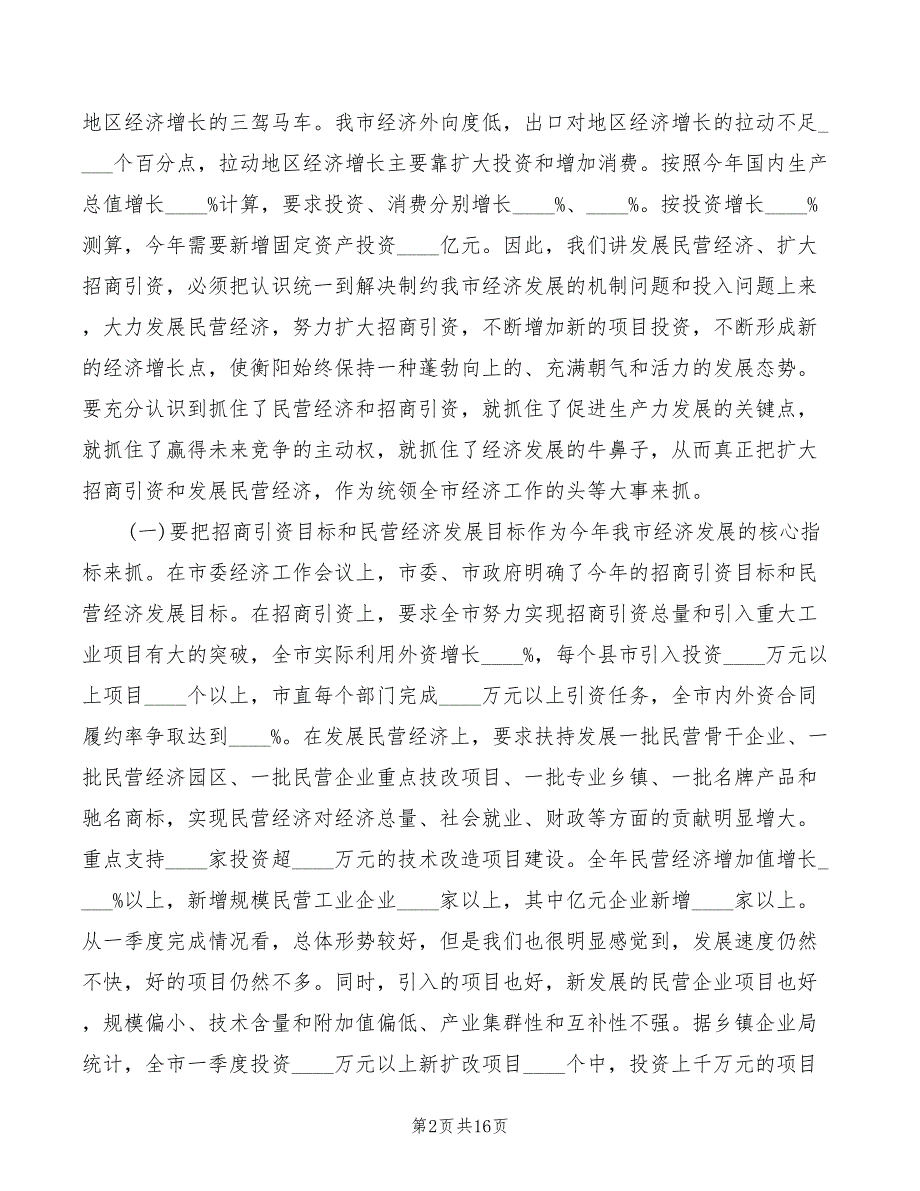 地区经济增长的三驾马车。我市经济外向度低，出口对地区经济增长的拉动不足_
___个百分点，拉动地区经济增长主要靠扩大投资和增加消费。按照今年国内生产
总值增长____%计算，要求投资、消费分别增长____%、____%。按投资增长____%
测算，今年需要新增固定资产投资____亿元。因此，我们讲发展民营经济、扩大
招商引资，必须把认识统一到解决制约我市经济发展的机制问题和投入问题上来
，大力发展民营经济，努力扩大招商引资，不断增加新的项目投资，不断形成新
的经济增长点，使衡阳始终保持一种蓬勃向上的、充满朝气和活力的发展态势。
要充分认识到抓住了民营经济和招商引资，就抓住了促进生产力发展的关键点，
就抓住了赢得未来竞争的主动权，就抓住了经济发展的牛鼻子，从而真正把扩大
招商引资和发展民营经济，作为统领全市经济工作的头等大事来抓。
(一)要把招商引资目标和民营经济发展目标作为今年我市经济发展的核心指
标来抓。在市委经济工作会议上，市委、市政府明确了今年的招商引资目标和民
营经济发展目标。在招商引资上，要求全市努力实现招商引资总量和引入重大工
业项目有大的突破，全市实际利用外资增长____%，每个县市引入投资____万元以
上项目____个以上，市直每个部门完成____万元以上引资任务，全市内外资合同
履约率争取达到____%。在发展民营经济上，要求扶持发展一批民营骨干企业、一
批民营经济园区、一批民营企业重点技改项目、一批专业乡镇、一批名牌产品和
驰名商标，实现民营经济对经济总量、社会就业、财政等方面的贡献明显增大。
重点支持____家投资超____万元的技术改造项目建设。全年民营经济增加值增长_
___%以上，新增规模民营工业企业____家以上，其中亿元企业新增____家以上。
从一季度完成情况看，总体形势较好，但是我们也很明显感觉到，发展速度仍然
不快，好的项目仍然不多。同时，引入的项目也好，新发展的民营企业项目也好
，规模偏小、技术含量和附加值偏低、产业集群性和互补性不强。据乡镇企业局
统计，全市一季度投资____万元以上新扩改项目____个中，投资上千万元的项目
第2页共16页